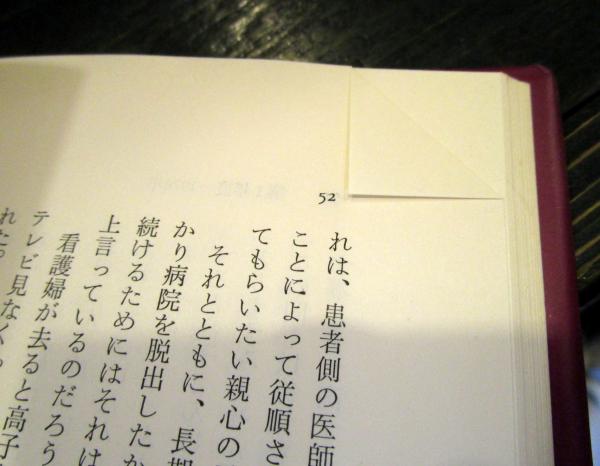 52
れは、患者側の医師
ことによって従順さ
てもらいたい親心の
それとともに、長期
かり病院を脱出したか
続けるためにはそれは
上言っているのだろう
看護婦が去ると高子
テレビ見なく
れた